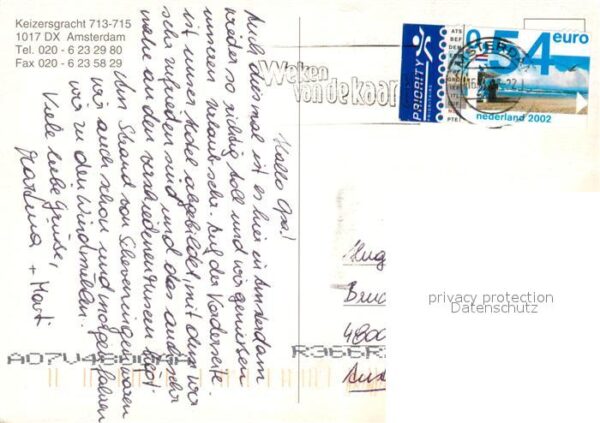 Keizersgracht 713-715
1017 DX Amsterdam
Tel. 020 - 6 23 29 80
Fax 020 - 6 23 58 29
Hallo Opa!
Auch diesmal ist es hier in Amsterdam
wieder so richtig toll und wir genießen
unseren Urlaub sehr. Auf der Vorderseite
ist unser Hotel abgebildet, mit dem wir
sehr zufrieden sind und das auch sehr
nahe an den verschiedenen Museen liegt.
Am Strand von Scheveningen waren
wir auch schon und morgen fahren
wir zu den Windmühlen.
Viele liebe Grüsse,
Martina + Marti
Weken
van de kaart
PRIORITY
PRIORITAIRE
AMSTERDAM
0,54 euro
nederland 2002
Hug
Bru
4800
privacy protection
Datenschutz
A07V4800AA
R366R